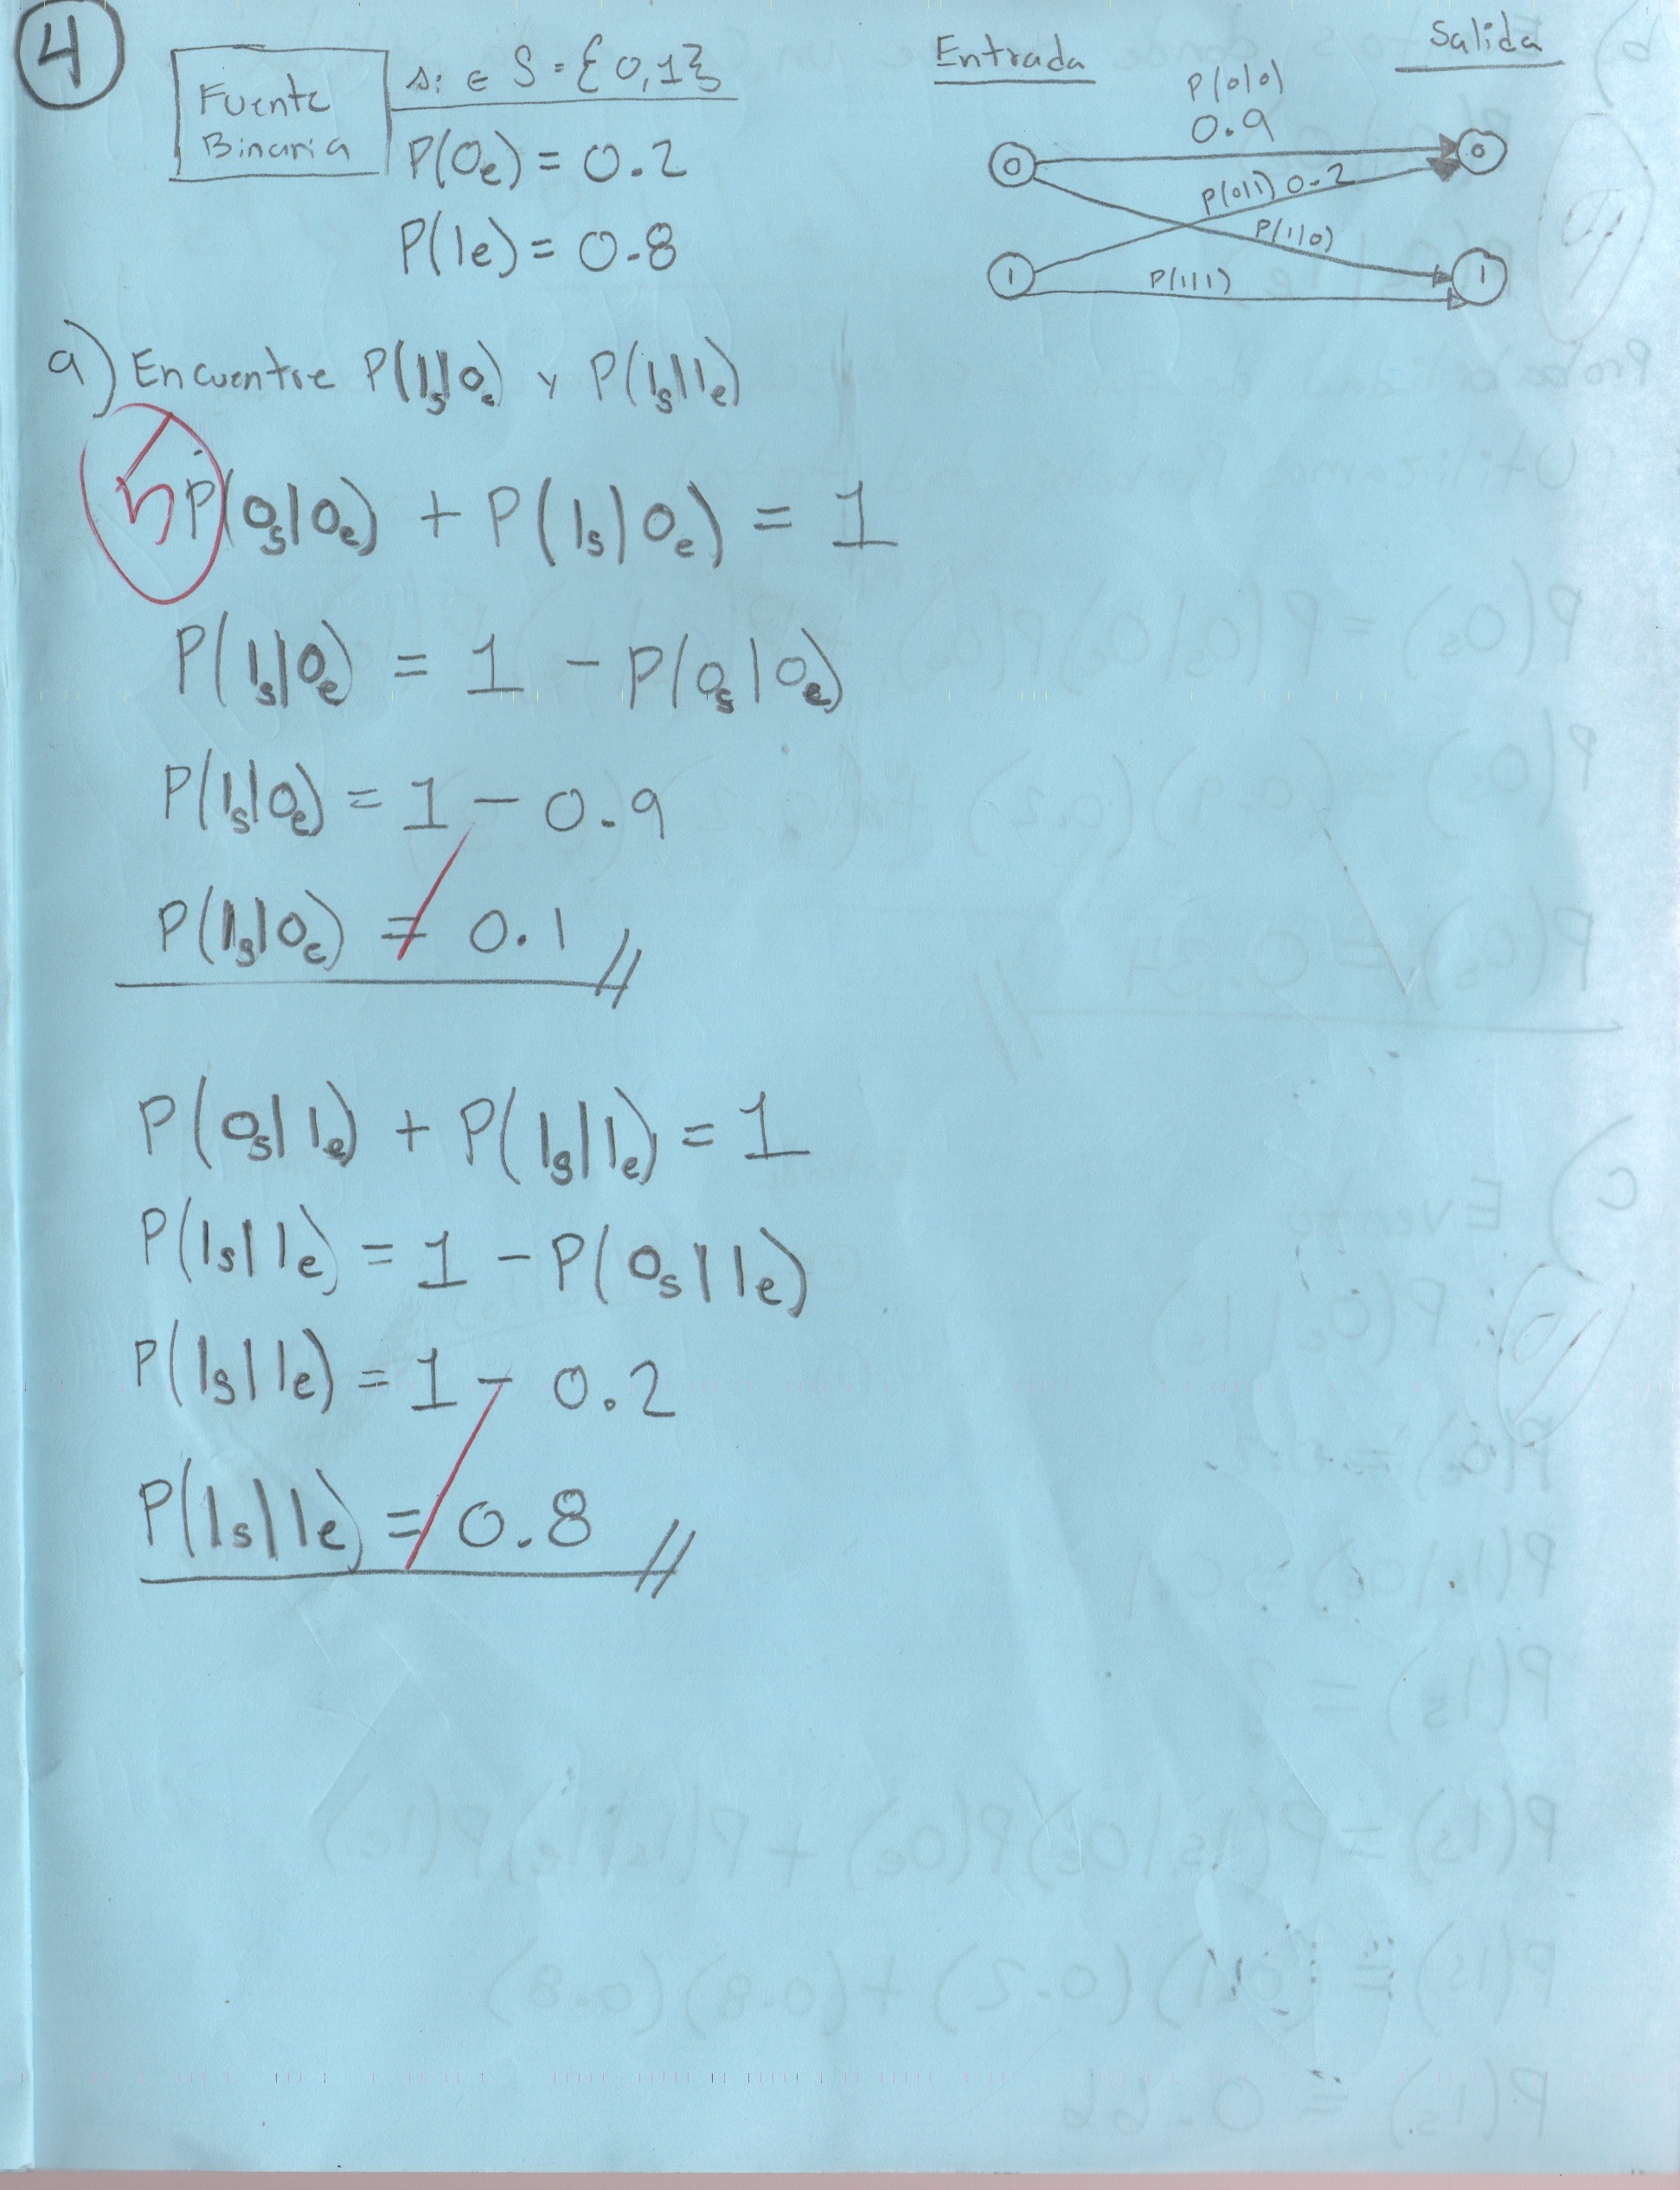 4
Fuente
Binaria
si ∈ S = {0,1}
P(0e) = 0.2
P(1e) = 0.8
Entrada
Salida
P(0|0)
0.9
0
0
P(0|1) 0.2
P(1|0)
1
P(1|1)
1
a) Encuentre P(1s|0e) y P(1s|1e)
5
P(0s|0e) + P(1s|0e) = 1
P(1s|0e) = 1 - P(0s|0e)
P(1s|0e) = 1 - 0.9
P(1s|0e) = 0.1 //
P(0s|1e) + P(1s|1e) = 1
P(1s|1e) = 1 - P(0s|1e)
P(1s|1e) = 1 - 0.2
P(1s|1e) = 0.8 //